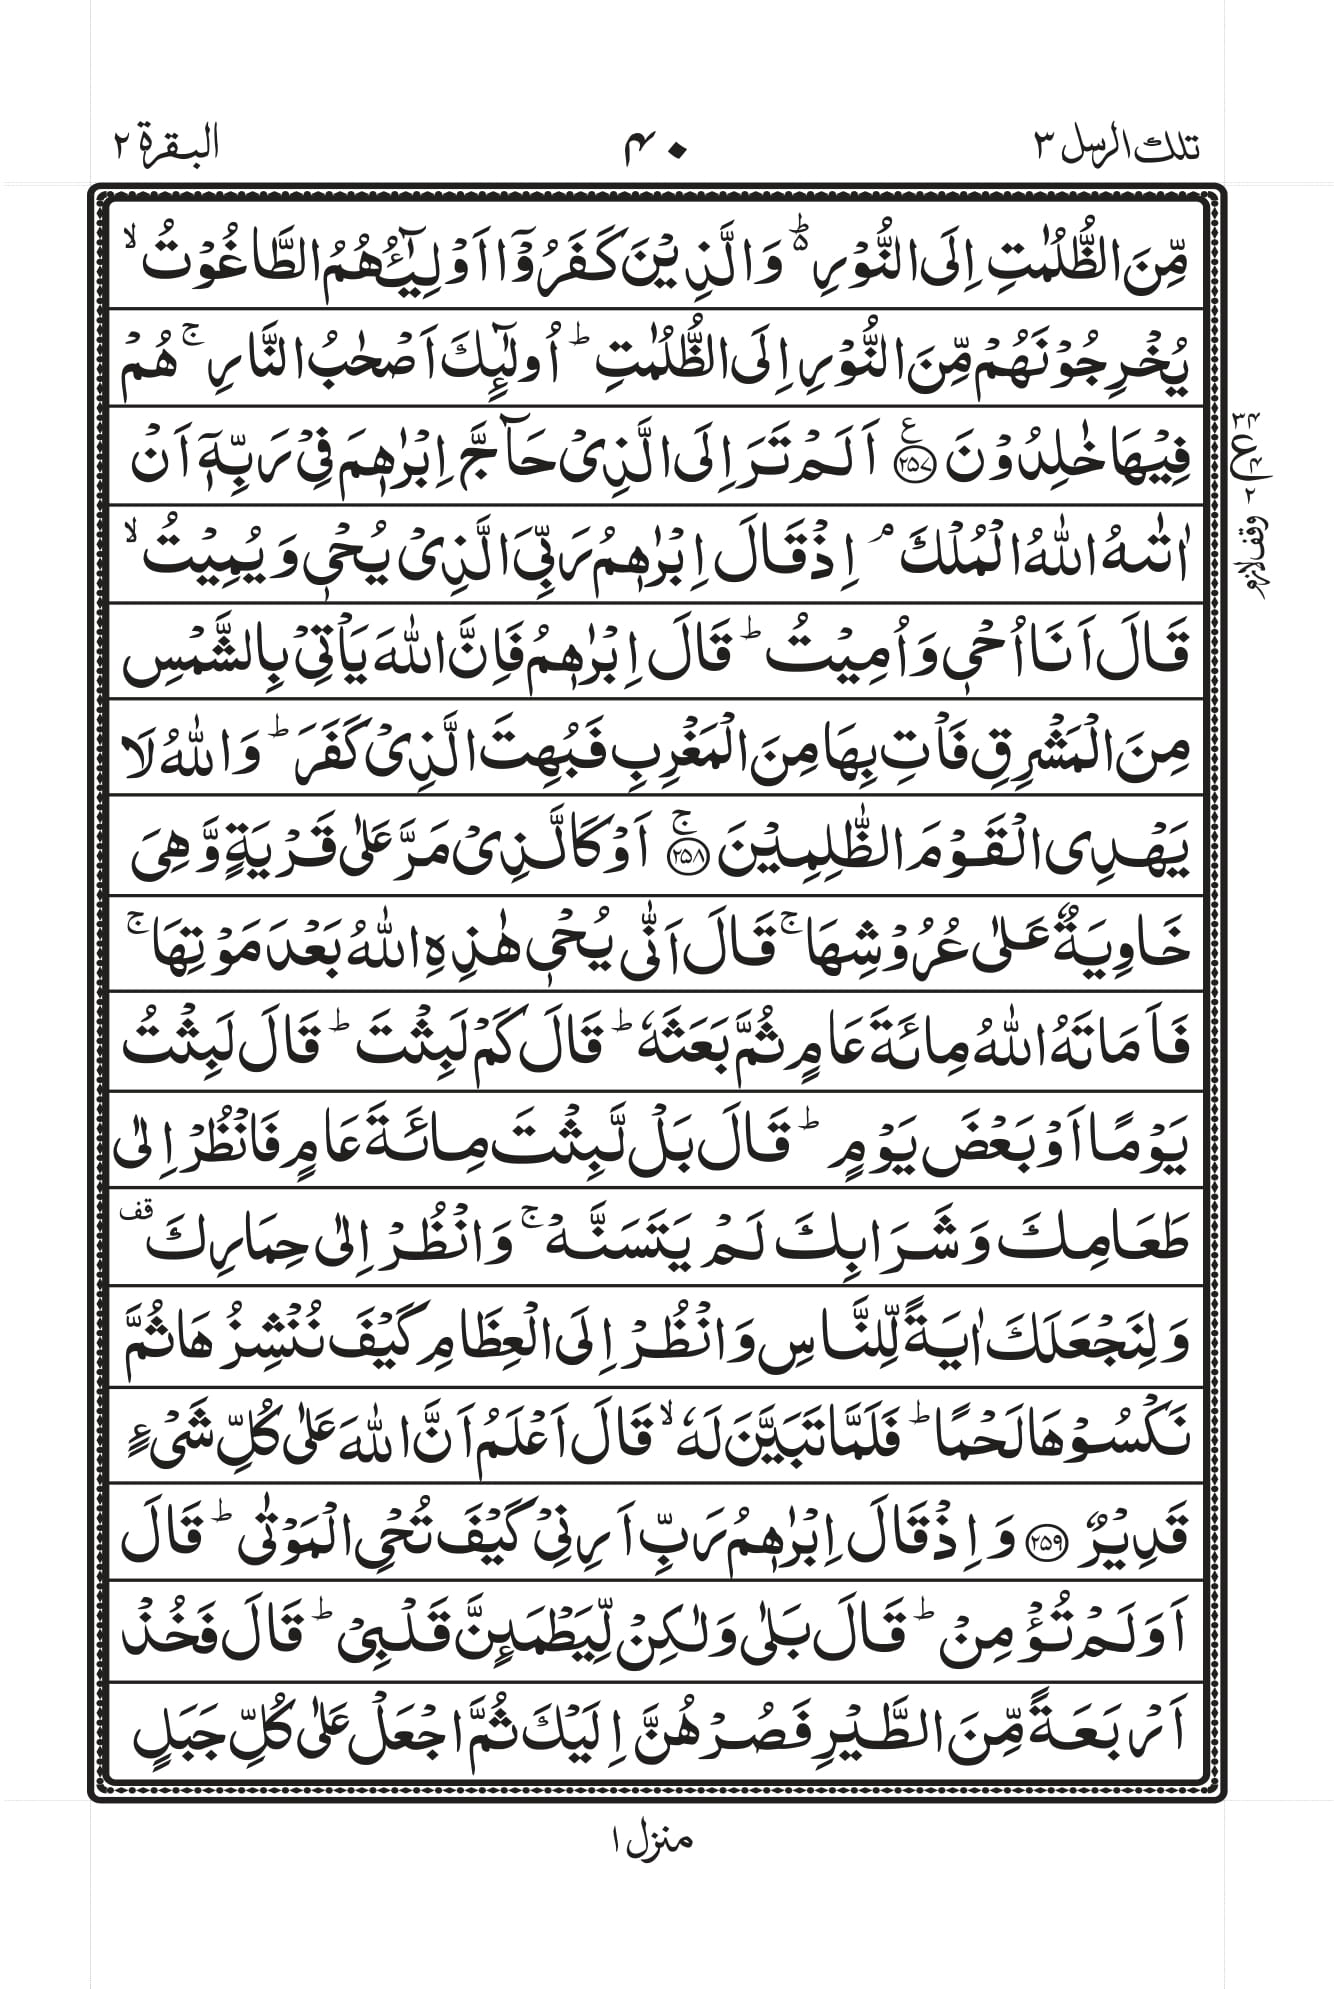 تلك الرسل ٣
۴۰
البقرة ٢
مِّنَ الظُّلُمٰتِ اِلَى النُّوْرِ ؕ۬ وَالَّذِيْنَ كَفَرُوْۤا اَوْلِيٰٓـُٔهُمُ الطَّاغُوْتُ ۙ
يُخْرِجُوْنَهُمْ مِّنَ النُّوْرِ اِلَى الظُّلُمٰتِ ؕ اُولٰٓئِكَ اَصْحٰبُ النَّارِ ۚ هُمْ
فِيْهَا خٰلِدُوْنَ ﴿۲۵۷﴾ ع اَلَمْ تَرَ اِلَى الَّذِىْ حَآجَّ اِبْرٰهٖمَ فِىْ رَبِّهٖۤ اَنْ
اٰتٰىهُ اللّٰهُ الْمُلْكَ ۘ اِذْ قَالَ اِبْرٰهٖمُ رَبِّىَ الَّذِىْ يُحْىٖ وَيُمِيْتُ ۙ
قَالَ اَنَا اُحْىٖ وَاُمِيْتُ ؕ قَالَ اِبْرٰهٖمُ فَاِنَّ اللّٰهَ يَاْتِىْ بِالشَّمْسِ
مِنَ الْمَشْرِقِ فَاْتِ بِهَا مِنَ الْمَغْرِبِ فَبُهِتَ الَّذِىْ كَفَرَ ؕ وَاللّٰهُ لَا
يَهْدِى الْقَوْمَ الظّٰلِمِيْنَ ﴿۲۵۸﴾ ۚ اَوْ كَالَّذِىْ مَرَّ عَلٰى قَرْيَةٍ وَّهِىَ
خَاوِيَةٌ عَلٰى عُرُوْشِهَا ۚ قَالَ اَنّٰى يُحْىٖ هٰذِهِ اللّٰهُ بَعْدَ مَوْتِهَا ۚ
فَاَمَاتَهُ اللّٰهُ مِائَةَ عَامٍ ثُمَّ بَعَثَهٗ ؕ قَالَ كَمْ لَبِثْتَ ؕ قَالَ لَبِثْتُ
يَوْمًا اَوْ بَعْضَ يَوْمٍ ؕ قَالَ بَلْ لَّبِثْتَ مِائَةَ عَامٍ فَانْظُرْ اِلٰى
طَعَامِكَ وَشَرَابِكَ لَمْ يَتَسَنَّهْ ۚ وَانْظُرْ اِلٰى حِمَارِكَ قف
وَلِنَجْعَلَكَ اٰيَةً لِّلنَّاسِ وَانْظُرْ اِلَى الْعِظَامِ كَيْفَ نُنْشِزُهَا ثُمَّ
نَكْسُوْهَا لَحْمًا ؕ فَلَمَّا تَبَيَّنَ لَهٗ ۙ قَالَ اَعْلَمُ اَنَّ اللّٰهَ عَلٰى كُلِّ شَىْءٍ
قَدِيْرٌ ﴿۲۵۹﴾ وَاِذْ قَالَ اِبْرٰهٖمُ رَبِّ اَرِنِىْ كَيْفَ تُحْىِ الْمَوْتٰى ؕ قَالَ
اَوَلَمْ تُؤْمِنْ ؕ قَالَ بَلٰى وَلٰكِنْ لِّيَطْمَئِنَّ قَلْبِىْ ؕ قَالَ فَخُذْ
اَرْبَعَةً مِّنَ الطَّيْرِ فَصُرْهُنَّ اِلَيْكَ ثُمَّ اجْعَلْ عَلٰى كُلِّ جَبَلٍ
۳۴
ع
۴
۲
وقف لازم
منزل ١